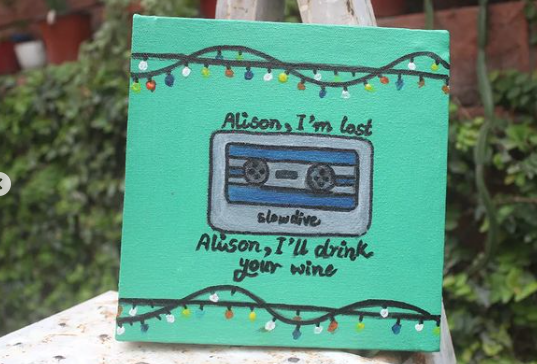 Alison, I'm lost
slowdive
Alison, I'll drink
your wine